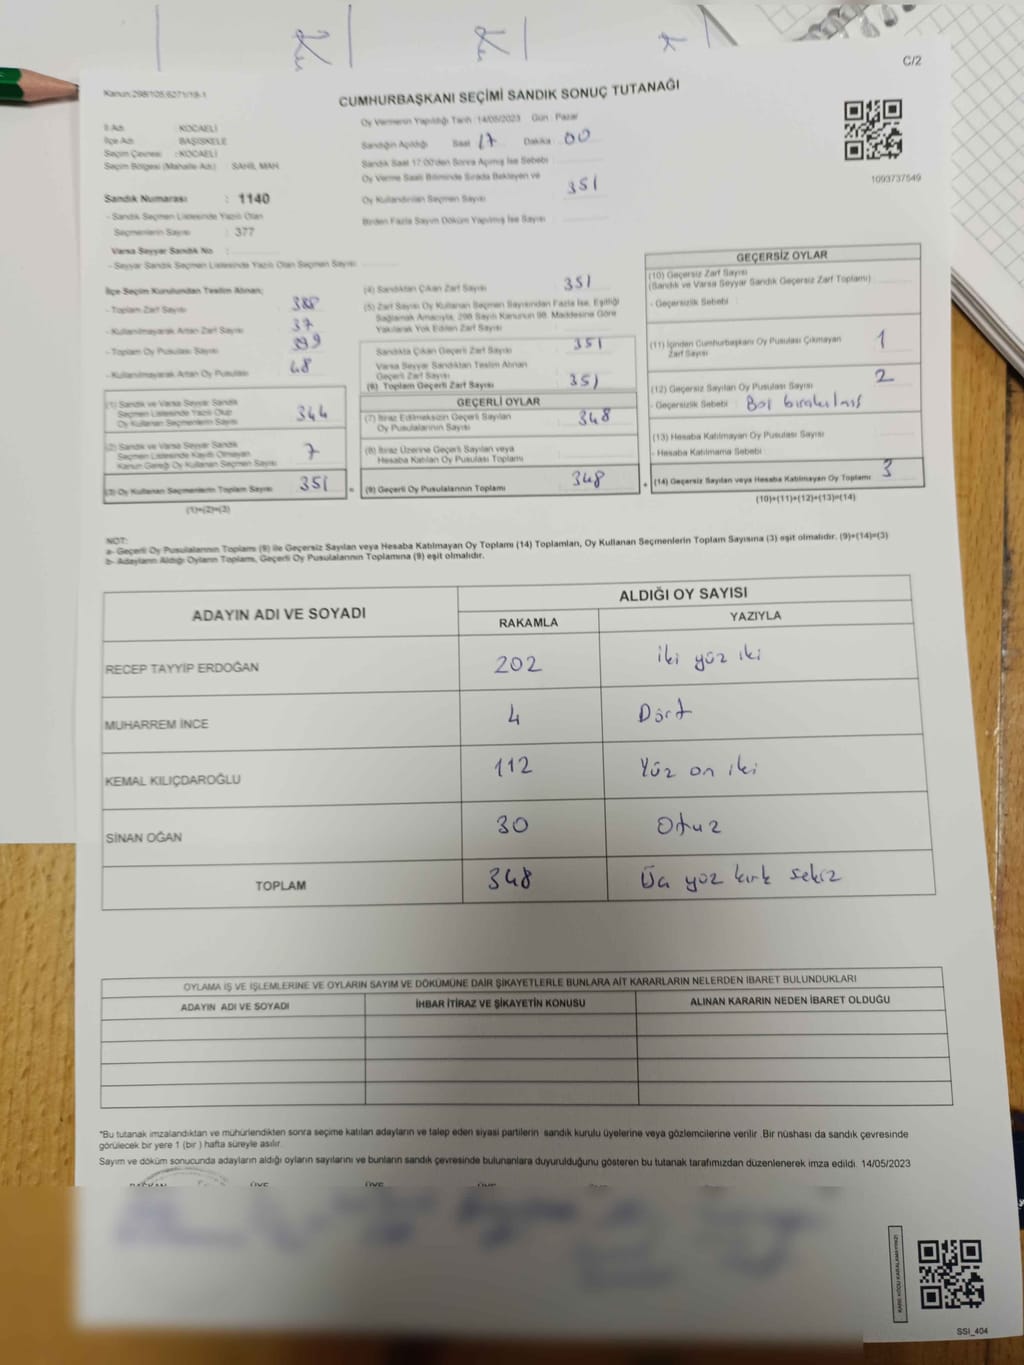 C/2
Kanun:298/105,6271/18-1
CUMHURBAŞKANI SEÇİMİ SANDIK SONUÇ TUTANAĞI
İl Adı : KOCAELİ
İlçe Adı : BAŞİSKELE
Seçim Çevresi : KOCAELİ
Seçim Bölgesi (Mahalle Adı) : SAHİL MAH.
Oy Vermenin Yapıldığı Tarih : 14/05/2023 Gün : Pazar
Sandığın Açıldığı Saat 17 Dakika 00
Sandık Saat 17:00'den Sonra Açılmış İse Sebebi
Oy Verme Saati Bitiminde Sırada Bekleyen ve
Oy Kullandırılan Seçmen Sayısı 351
Birden Fazla Sayım Döküm Yapılmış İse Sayısı
1093737549
Sandık Numarası : 1140
- Sandık Seçmen Listesinde Yazılı Olan
Seçmenlerin Sayısı : 377
Varsa Seyyar Sandık No :
- Seyyar Sandık Seçmen Listesinde Yazılı Olan Seçmen Sayısı
İlçe Seçim Kurulundan Teslim Alınan;
- Toplam Zarf Sayısı 388
- Kullanılmayarak Artan Zarf Sayısı 37
- Toplam Oy Pusulası Sayısı 399
- Kullanılmayarak Artan Oy Pusulası 48
(1) Sandık ve Varsa Seyyar Sandık
Seçmen Listesinde Yazılı Olup
Oy Kullanan Seçmenlerin Sayısı 344
(2) Sandık ve Varsa Seyyar Sandık
Seçmen Listesinde Kayıtlı Olmayan
Kanun Gereği Oy Kullanan Seçmen Sayısı 7
(3) Oy Kullanan Seçmenlerin Toplam Sayısı 351
(1)+(2)=(3)
(4) Sandıktan Çıkan Zarf Sayısı 351
(5) Zarf Sayısı Oy Kullanan Seçmen Sayısından Fazla İse, Eşitliği
Sağlamak Amacıyla, 298 Sayılı Kanunun 98. Maddesine Göre
Yakılarak Yok Edilen Zarf Sayısı
Sandıkta Çıkan Geçerli Zarf Sayısı 351
Varsa Seyyar Sandıktan Teslim Alınan
Geçerli Zarf Sayısı
(6) Toplam Geçerli Zarf Sayısı 351
GEÇERLİ OYLAR
(7) İtiraz Edilmeksizin Geçerli Sayılan
Oy Pusulalarının Sayısı 348
(8) İtiraz Üzerine Geçerli Sayılan veya
Hesaba Katılan Oy Pusulası Toplamı
= (9) Geçerli Oy Pusulalarının Toplamı 348
GEÇERSİZ OYLAR
(10) Geçersiz Zarf Sayısı
(Sandık ve Varsa Seyyar Sandık Geçersiz Zarf Toplamı)
- Geçersizlik Sebebi :
(11) İçinden Cumhurbaşkanı Oy Pusulası Çıkmayan
Zarf Sayısı 1
(12) Geçersiz Sayılan Oy Pusulası Sayısı 2
- Geçersizlik Sebebi : Boş bırakılmış
(13) Hesaba Katılmayan Oy Pusulası Sayısı
- Hesaba Katılmama Sebebi
+ (14) Geçersiz Sayılan veya Hesaba Katılmayan Oy Toplamı 3
(10)+(11)+(12)+(13)=(14)
NOT:
a- Geçerli Oy Pusulalarının Toplamı (9) ile Geçersiz Sayılan veya Hesaba Katılmayan Oy Toplamı (14) Toplamları, Oy Kullanan Seçmenlerin Toplam Sayısına (3) eşit olmalıdır. (9)+(14)=(3)
b- Adayların Aldığı Oyların Toplamı, Geçerli Oy Pusulalarının Toplamına (9) eşit olmalıdır.
ADAYIN ADI VE SOYADI ALDIĞI OY SAYISI
RAKAMLA YAZIYLA
RECEP TAYYİP ERDOĞAN 202 iki yüz iki
MUHARREM İNCE 4 Dört
KEMAL KILIÇDAROĞLU 112 Yüz on iki
SİNAN OĞAN 30 Otuz
TOPLAM 348 Üç yüz kırk sekiz
OYLAMA İŞ VE İŞLEMLERİNE VE OYLARIN SAYIM VE DÖKÜMÜNE DAİR ŞİKAYETLERLE BUNLARA AİT KARARLARIN NELERDEN İBARET BULUNDUKLARI
ADAYIN ADI VE SOYADI İHBAR İTİRAZ VE ŞİKAYETİN KONUSU ALINAN KARARIN NEDEN İBARET OLDUĞU
*Bu tutanak imzalandıktan ve mühürlendikten sonra seçime katılan adayların ve talep eden siyasi partilerin sandık kurulu üyelerine veya gözlemcilerine verilir .Bir nüshası da sandık çevresinde
görülecek bir yere 1 (bir ) hafta süreyle asılır.
Sayım ve döküm sonucunda adayların aldığı oyların sayılarını ve bunların sandık çevresinde bulunanlara duyurulduğunu gösteren bu tutanak tarafımızdan düzenlenerek imza edildi. 14/05/2023
BAŞKAN ÜYE ÜYE ÜYE
KARE KODU KARALAMAYINIZ!
SSİ_404